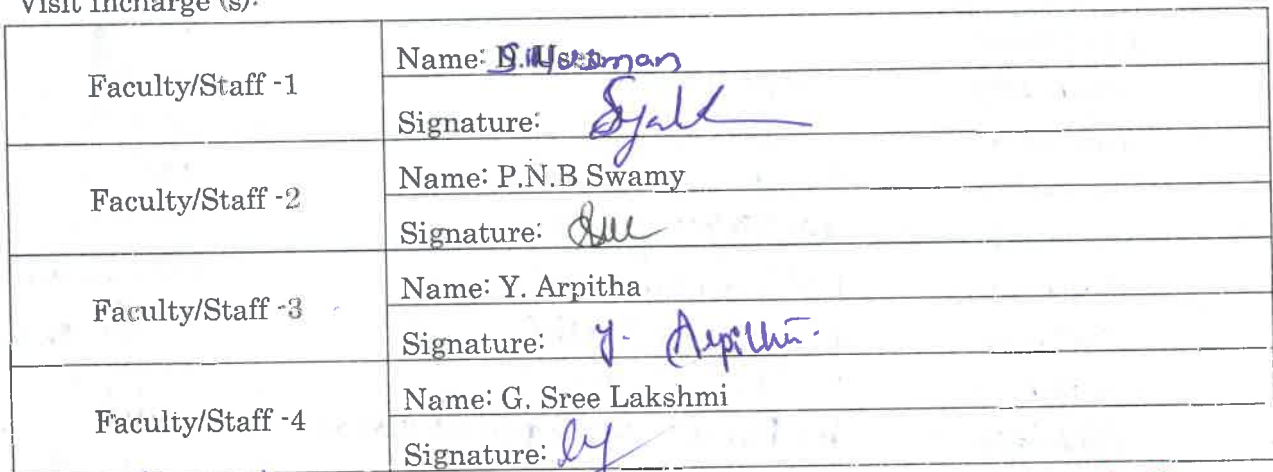 Visit Incharge (s):
Faculty/Staff -1
Name:
Signature:
Faculty/Staff -2
Name: P.N.B Swamy
Signature:
Faculty/Staff -3
Name: Y. Arpitha
Signature: Y. Arpitha.
Faculty/Staff -4
Name: G. Sree Lakshmi
Signature: